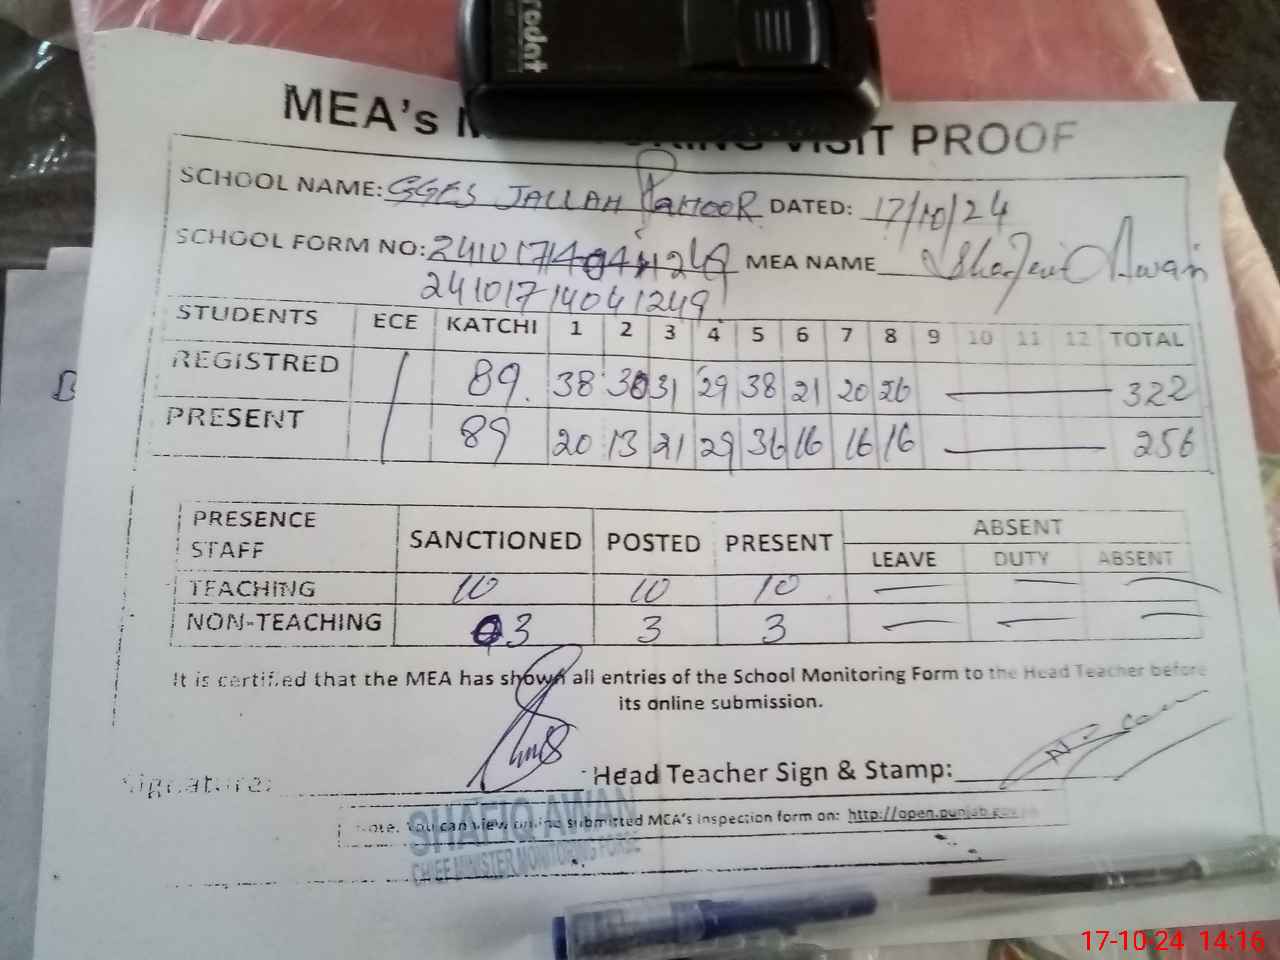 rodat
MEA's M VISIT PROOF
SCHOOL NAME: GGES JALLAH DATED: 17/10/24
SCHOOL FORM NO: MEA NAME Awan
24101714041249
STUDENTS ECE KATCHI 1 2 3 4 5 6 7 8 9 10 11 12 TOTAL
REGISTRED 89 38 30 31 29 38 21 20 26 322
PRESENT 89 20 13 21 29 36 16 16 16 256
PRESENCE STAFF SANCTIONED POSTED PRESENT ABSENT
LEAVE DUTY ABSENT
TEACHING 10 10 10
NON-TEACHING 3 3 3
It is certified that the MEA has shown all entries of the School Monitoring Form to the Head Teacher before
its online submission.
Signature: Head Teacher Sign & Stamp:
SHAFIQ AWAN
Note. You can view online submitted MEA's inspection form on: http://open.punjab.gov.pk
CHIEF MINISTER MONITORING FORSE
17-10-24 14:16